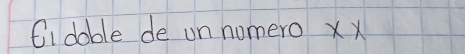 El doble de un numero xx